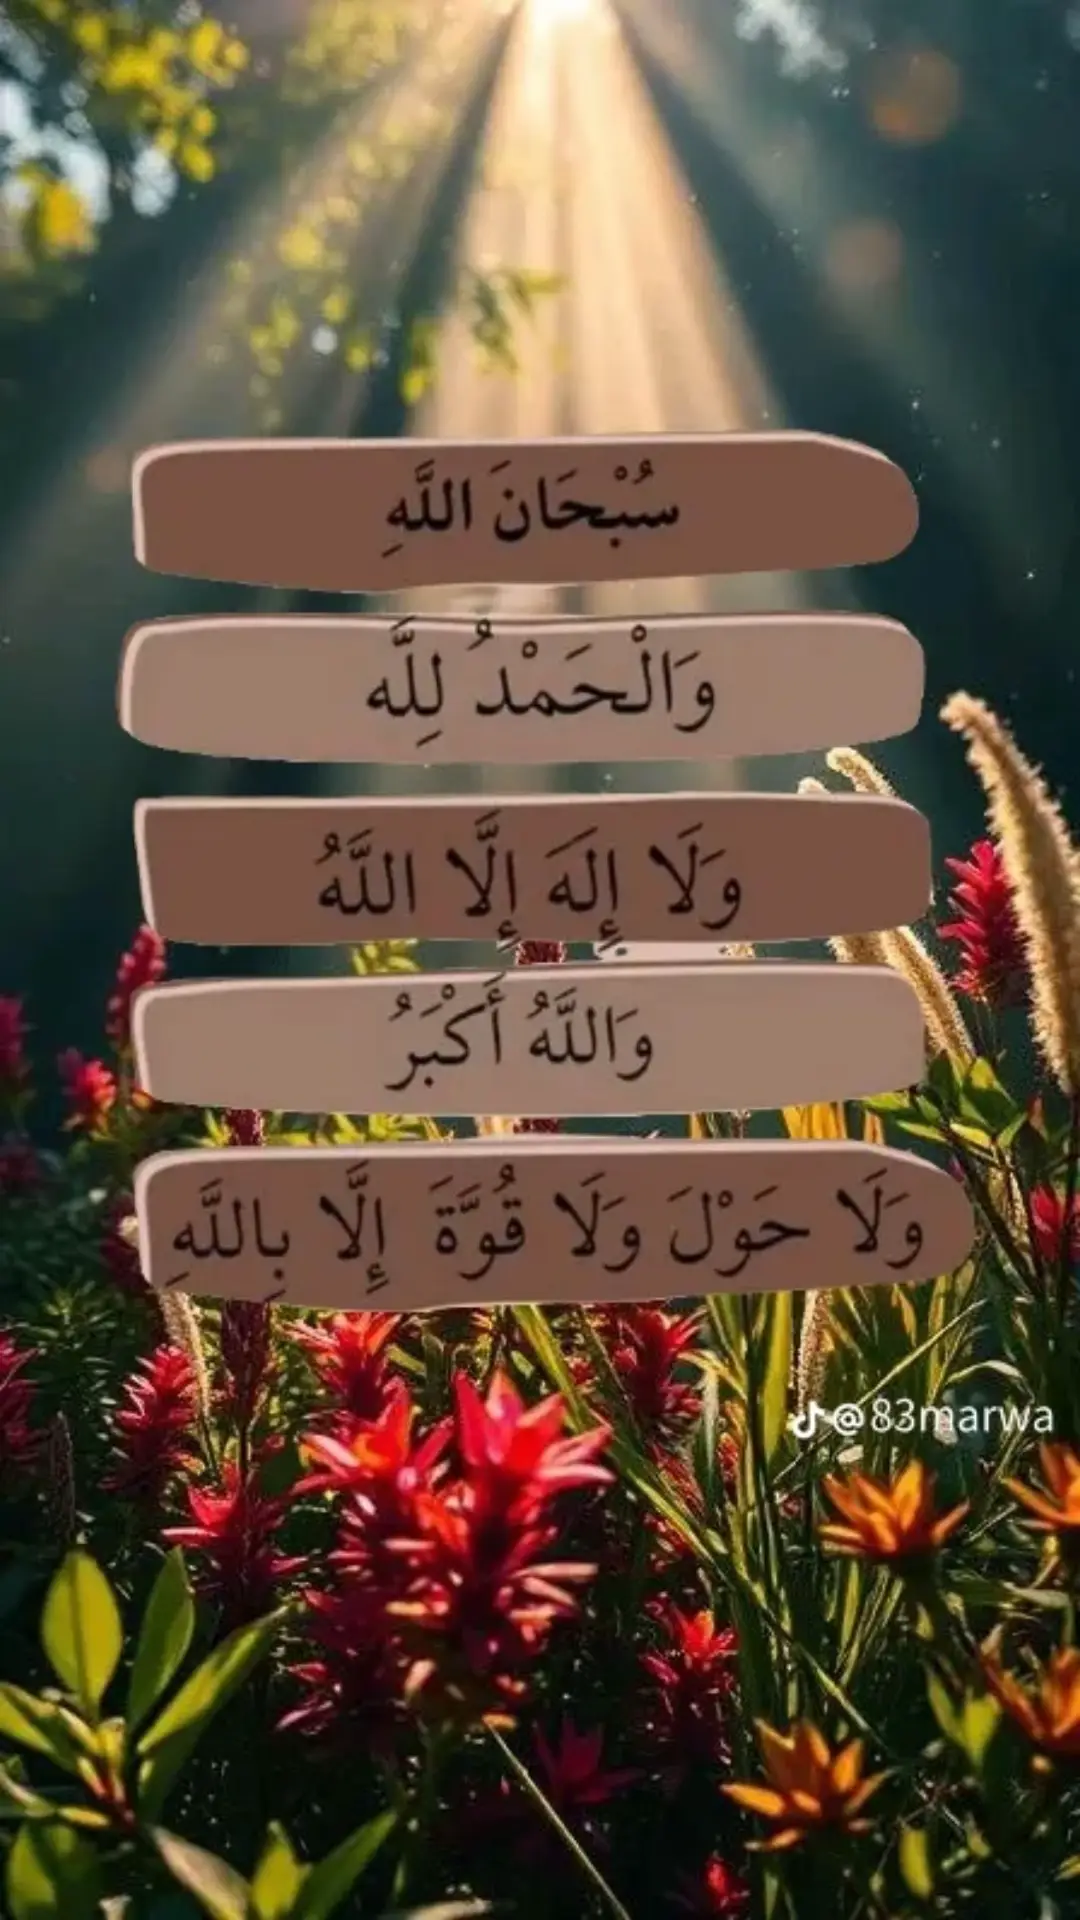 سُبْحَانَ اللَّهِ
وَالْحَمْدُ لِلَّه
وَلَا إِلَهَ إِلَّا اللَّهُ
وَاللَّهُ أَكْبَرُ
وَلَا حَوْلَ وَلَا قُوَّةَ إِلَّا بِاللَّهِ
@83marwa